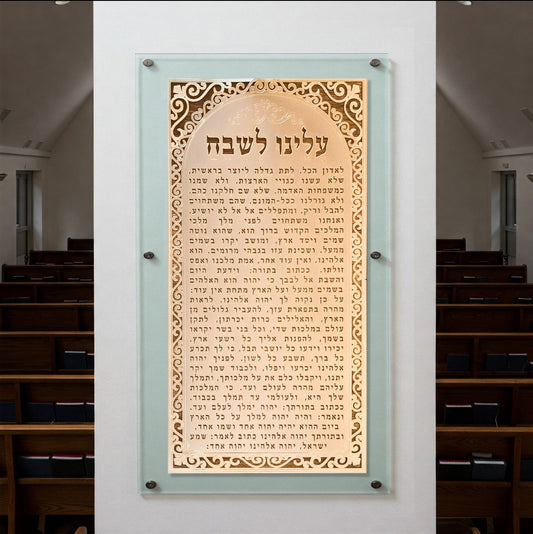 עלינו לשבח
לאדון הכל, לתת גדלה ליוצר בראשית,
שלא עשנו כגויי הארצות, ולא שמנו
כמשפחות האדמה. שלא שם חלקנו כהם,
ולא גורלנו ככל-המונם, שהם משתחוים
להבל וריק, ומתפללים אל אל לא יושיע.
ואנחנו משתחוים לפני מלך מלכי
המלכים הקדוש ברוך הוא, שהוא נוטה
שמים ויסד ארץ, ומושב יקרו בשמים
ממעל, ושכינת עזו בגבהי מרומים. הוא
אלהינו, ואין עוד אחר, אמת מלכנו ואפס
זולתו. ככתוב בתורה: וידעת היום
והשבת אל לבבך כי יהוה הוא האלהים
בשמים ממעל ועל הארץ מתחת אין עוד:
על כן נקוה לך יהוה אלהינו. לראות
מהרה בתפארת עזך, להעביר גלולים מן
הארץ, והאלילים כרות יכרתון, לתקן
עולם במלכות שדי, וכל בני בשר יקראו
בשמך, להפנות אליך כל רשעי ארץ.
יכירו וידעו כל יושבי תבל, כי לך תכרע
כל ברך, תשבע כל לשון. לפניך יהוה
אלהינו יכרעו ויפלו, ולכבוד שמך יקר
יתנו, ויקבלו כלם את על מלכותך, ותמלך
עליהם מהרה לעולם ועד. כי המלכות
שלך היא, ולעולמי עד תמלך בכבוד.
ככתוב בתורתך: יהוה ימלך לעלם ועד.
ונאמר: והיה יהוה למלך על כל הארץ
ביום ההוא יהיה יהוה אחד ושמו אחד.
ובתורתך יהוה אלהינו כתוב לאמר: שמע
ישראל, יהוה אלהינו יהוה אחד: